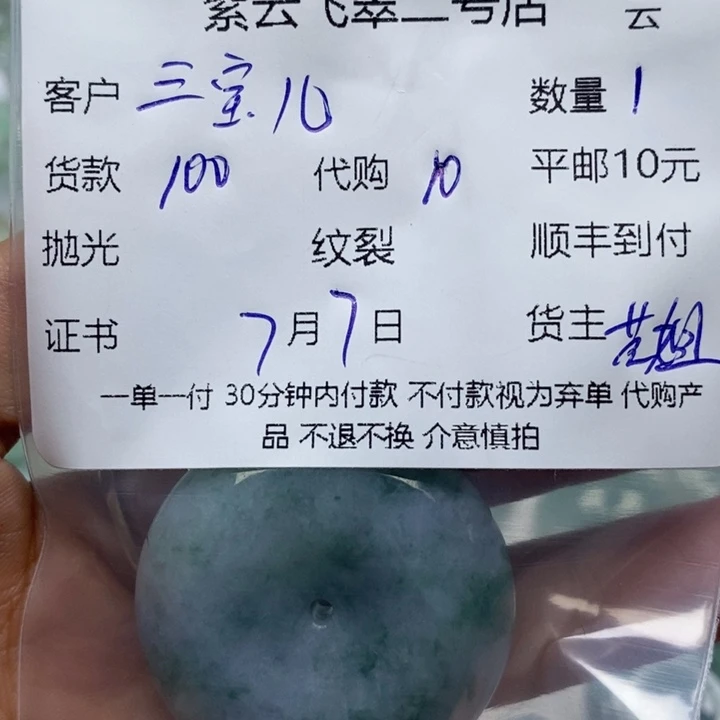 紫云飞翠二号店 云
客户 三宝儿 数量 1
货款 100 代购 10 平邮10元
抛光 纹裂 顺丰到付
证书 7月7日 货主
一单一付 30分钟内付款 不付款视为弃单 代购产
品 不退不换 介意慎拍